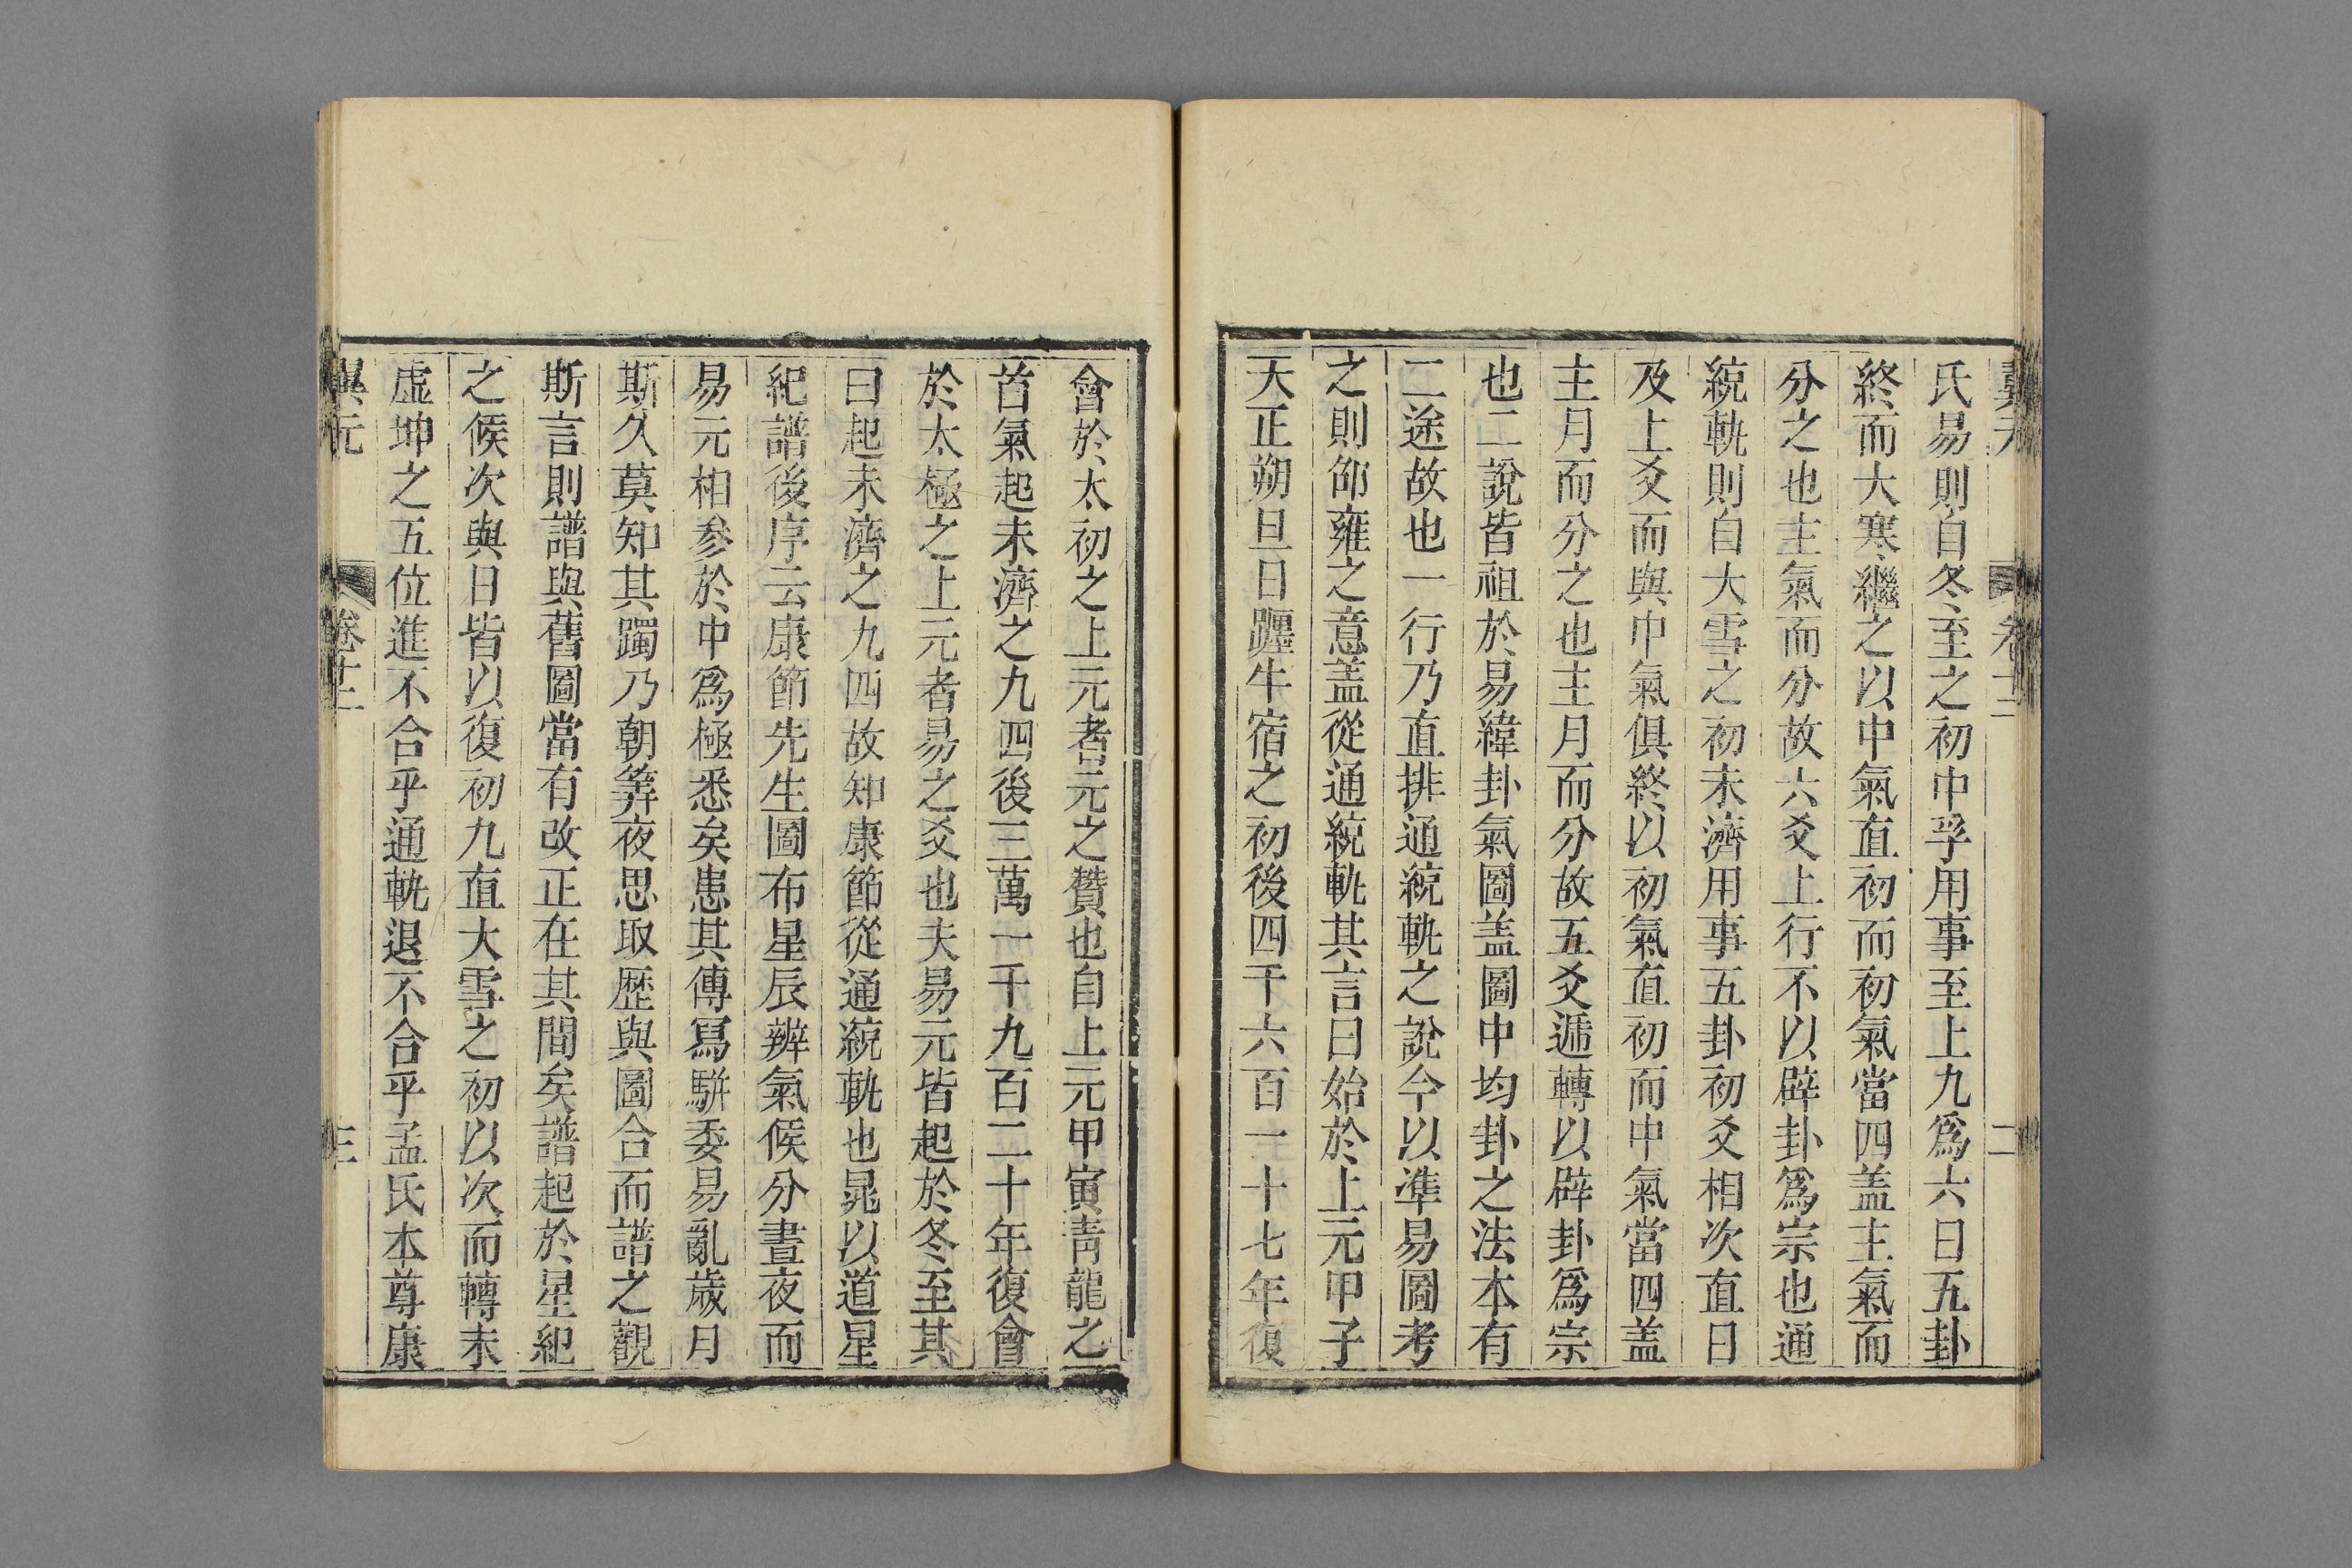 翼元 卷十二 二
氏易則自冬至之初中孚用事至上九爲六日五卦
終而大寒繼之以中氣直初而初氣當四盖主氣而
分之也主氣而分故六爻上行不以辟卦爲宗也通
綂軌則自大雪之初未濟用事五卦初爻相次直日
及上爻而與中氣俱終以初氣直初而中氣當四盖
主月而分之也主月而分故五爻遞轉以辟卦爲宗
也二說皆祖於易緯卦氣圖盖圖中均卦之法本有
二途故也一行乃直排通綂軌之說今以準易圖考
之則邵雍之意盖從通綂軌其言曰始於上元甲子
天正朔旦日躔牛宿之初後四千六百一十七年復
會於太初之上元者元之贊也自上元甲寅靑龍之
首氣起未濟之九四後三萬一千九百二十年復會
於太極之上元者易之爻也夫易元皆起於冬至其
曰起未濟之九四故知康節從通綂軌也晁以道星
紀譜後序云康節先生圖布星辰辨氣候分晝夜而
易元相参於中爲極悉矣患其傳寫騈委易亂歲月
斯久莫知其躅乃朝筭夜思取歴與圖合而譜之觀
斯言則譜與舊圖當有改正在其間矣譜起於星紀
之候次與日皆以復初九直大雪之初以次而轉未
虛坤之五位進不合乎通軌退不合乎孟氏本尊康
翼元 卷十二 三